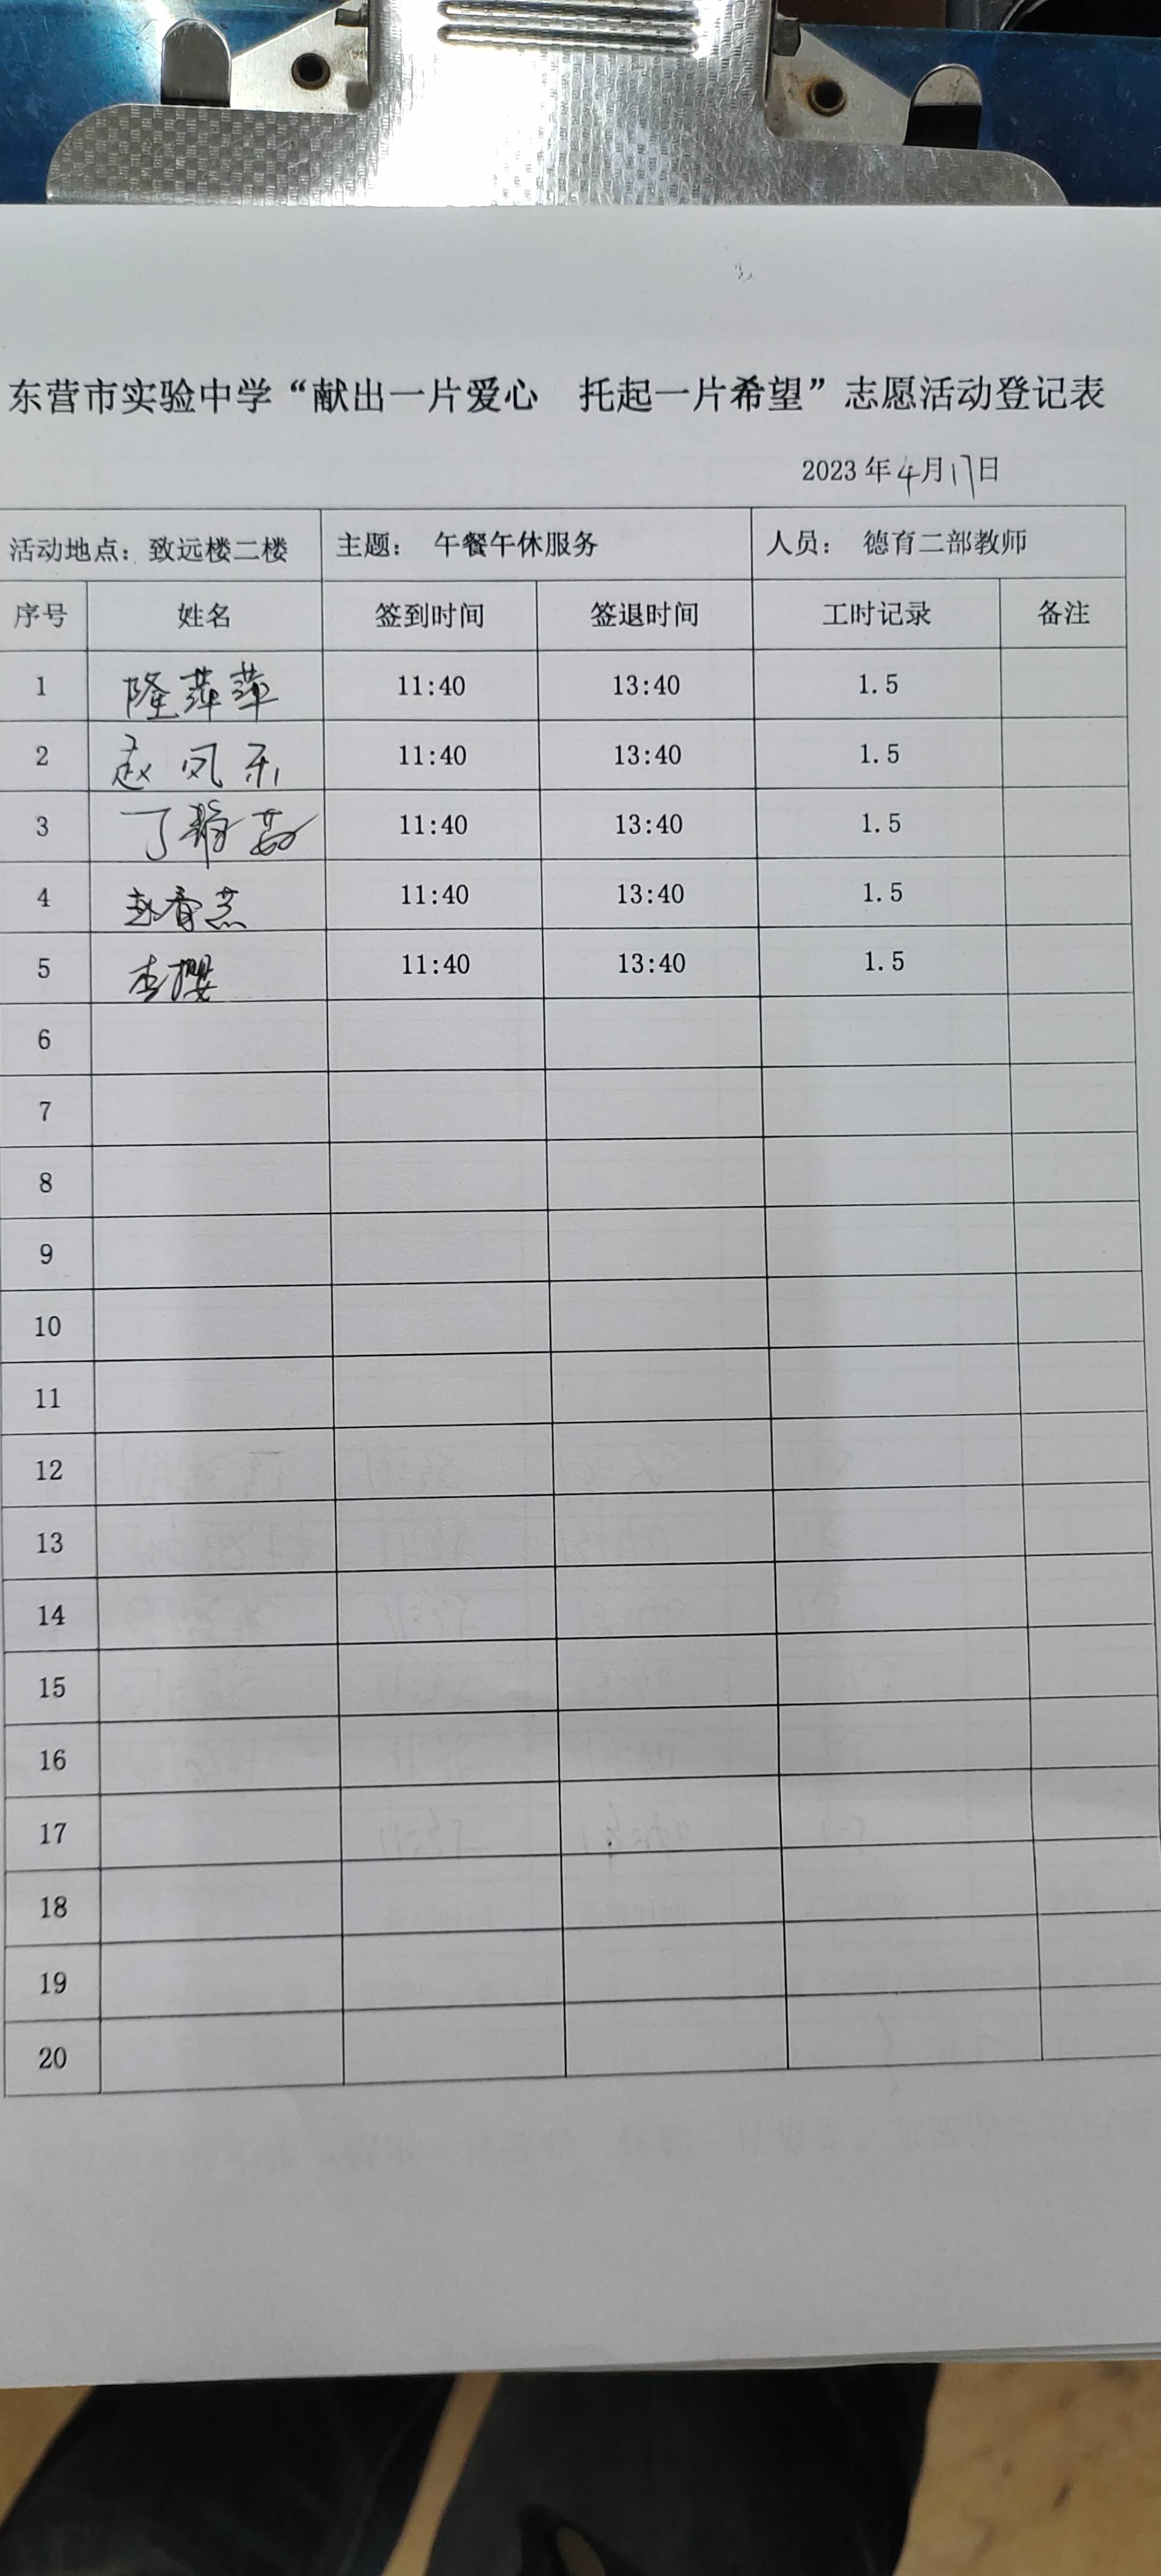 东营市实验中学“献出一片爱心 托起一片希望”志愿活动登记表
2023年4月17日
活动地点：致远楼二楼 主题： 午餐午休服务 人员： 德育二部教师
序号 姓名 签到时间 签退时间 工时记录 备注
1 隆萍萍 11:40 13:40 1.5
2 赵凤 11:40 13:40 1.5
3 丁静茹 11:40 13:40 1.5
4 赵春燕 11:40 13:40 1.5
5 李樱 11:40 13:40 1.5
6
7
8
9
10
11
12
13
14
15
16
17
18
19
20